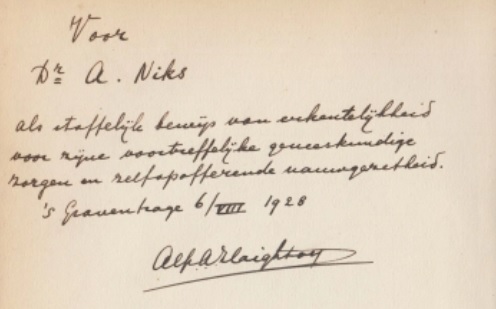 Voor
Dr A. Niks
als stoffelijk bewijs van erkentelijkheid
voor zijne voortreffelijke geneeskundige
zorgen en zelfopofferende nauwgezetheid.
's Gravenhage 6/VIII 1928